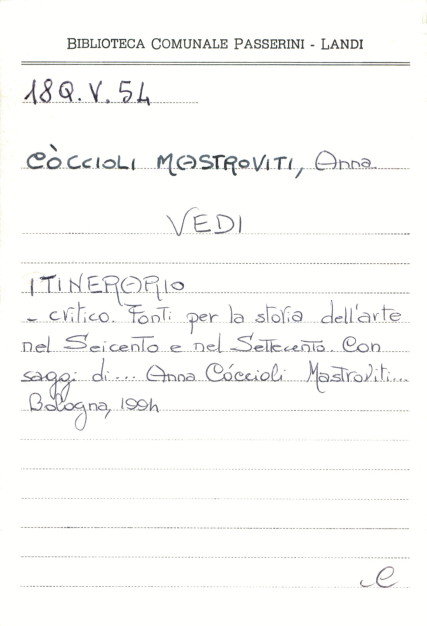 BIBLIOTECA COMUNALE PASSERINI - LANDI
18Q.V.54
CÒCCIOLI MASTROVITI, Anna
VEDI
ITINERARIO
- critico. Fonti per la storia dell'arte
nel Seicento e nel Settecento. Con
saggi di... Anna Cóccioli Mastroviti...
Bologna, 1994
e